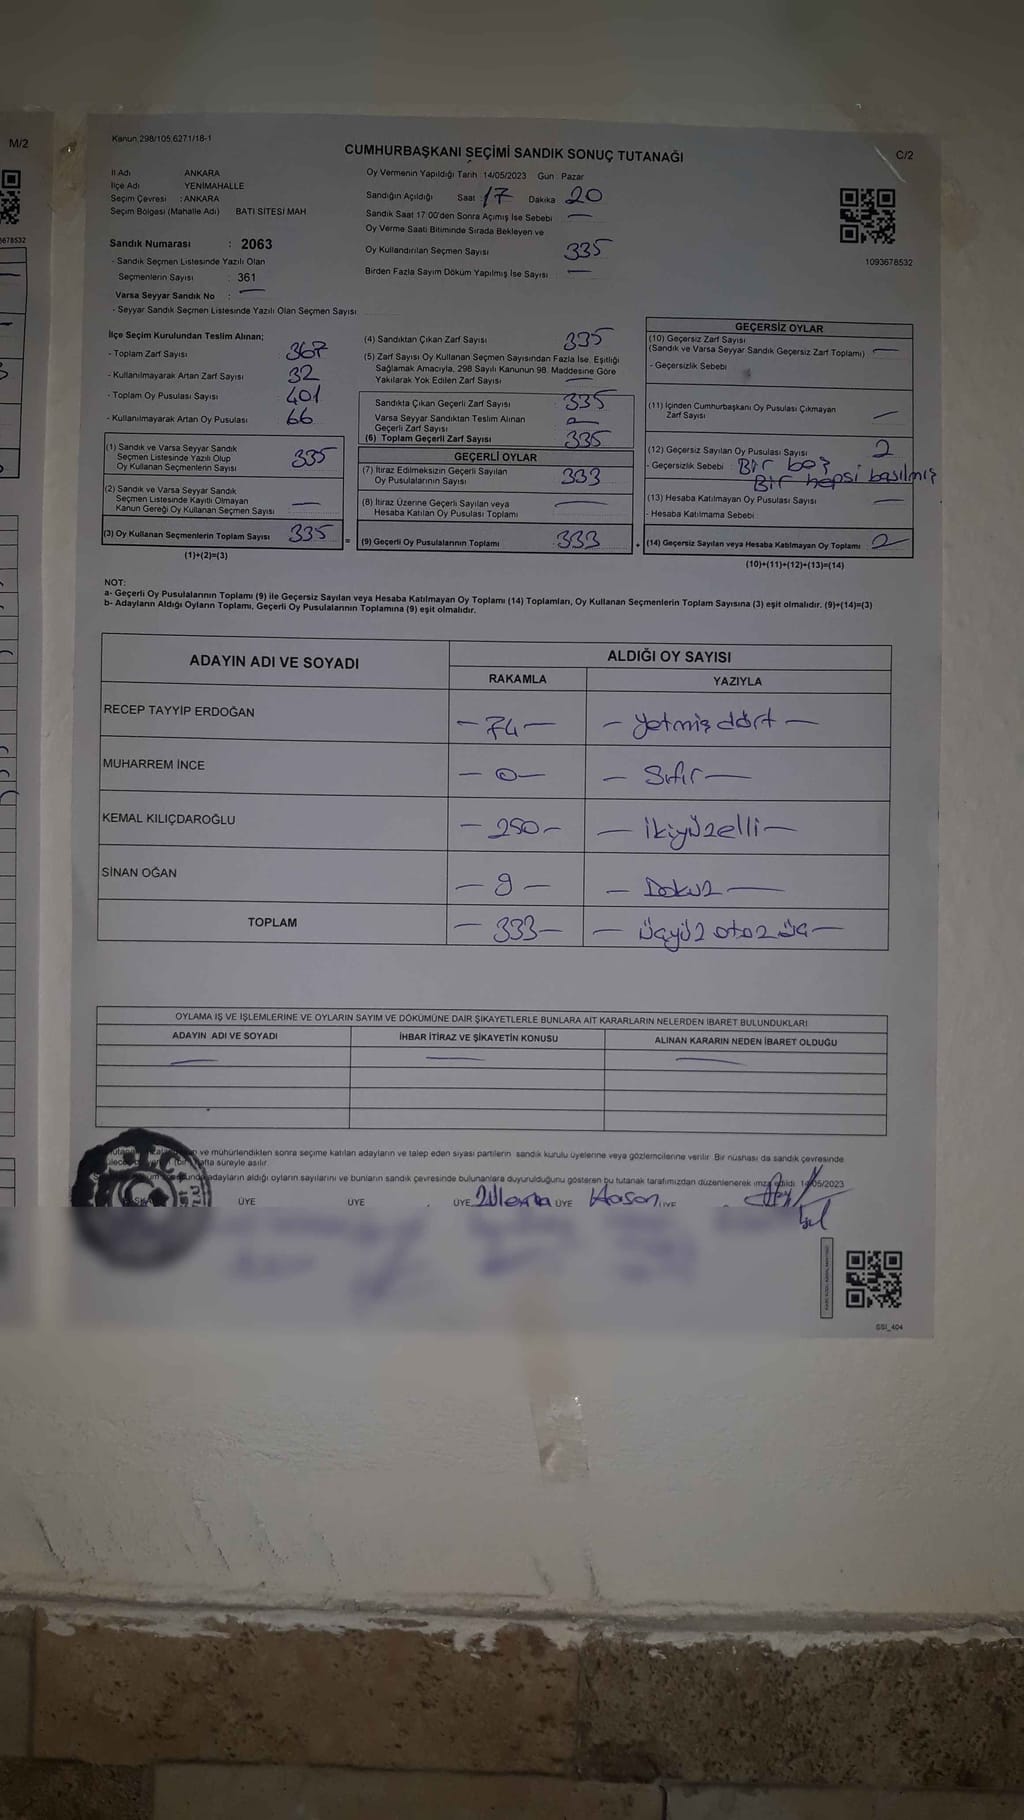 M/2
Kanun 298/105;6271/18-1
CUMHURBAŞKANI SEÇİMİ SANDIK SONUÇ TUTANAĞI
C/2
İl Adı ANKARA
İlçe Adı YENİMAHALLE
Seçim Çevresi : ANKARA
Seçim Bölgesi (Mahalle Adı) BATI SİTESİ MAH
Oy Vermenin Yapıldığı Tarih 14/05/2023 Gün : Pazar
Sandığın Açıldığı Saat 17 Dakika 20
Sandık Saat 17:00'den Sonra Açımış İse Sebebi —
Oy Verme Saati Bitiminde Sırada Bekleyen ve
Oy Kullandırılan Seçmen Sayısı 335
Birden Fazla Sayım Döküm Yapılmış İse Sayısı —
1093678532
678532
Sandık Numarası : 2063
- Sandık Seçmen Listesinde Yazılı Olan
Seçmenlerin Sayısı : 361
Varsa Seyyar Sandık No : —
- Seyyar Sandık Seçmen Listesinde Yazılı Olan Seçmen Sayısı
İlçe Seçim Kurulundan Teslim Alınan;
- Toplam Zarf Sayısı 367
- Kullanılmayarak Artan Zarf Sayısı 32
- Toplam Oy Pusulası Sayısı 401
- Kullanılmayarak Artan Oy Pusulası 66
(1) Sandık ve Varsa Seyyar Sandık
Seçmen Listesinde Yazılı Olup
Oy Kullanan Seçmenlerin Sayısı 335
(2) Sandık ve Varsa Seyyar Sandık
Seçmen Listesinde Kayıtlı Olmayan
Kanun Gereği Oy Kullanan Seçmen Sayısı —
(3) Oy Kullanan Seçmenlerin Toplam Sayısı 335
(1)+(2)=(3)
=
(4) Sandıktan Çıkan Zarf Sayısı 335
(5) Zarf Sayısı Oy Kullanan Seçmen Sayısından Fazla İse, Eşitliği
Sağlamak Amacıyla, 298 Sayılı Kanunun 98. Maddesine Göre
Yakılarak Yok Edilen Zarf Sayısı —
Sandıkta Çıkan Geçerli Zarf Sayısı 335
Varsa Seyyar Sandıktan Teslim Alınan
Geçerli Zarf Sayısı
(6) Toplam Geçerli Zarf Sayısı 335
GEÇERLİ OYLAR
(7) İtiraz Edilmeksizin Geçerli Sayılan
Oy Pusulalarının Sayısı 333
(8) İtiraz Üzerine Geçerli Sayılan veya
Hesaba Katılan Oy Pusulası Toplamı —
(9) Geçerli Oy Pusulalarının Toplamı 333
+
GEÇERSİZ OYLAR
(10) Geçersiz Zarf Sayısı
(Sandık ve Varsa Seyyar Sandık Geçersiz Zarf Toplamı) —
- Geçersizlik Sebebi
(11) İçinden Cumhurbaşkanı Oy Pusulası Çıkmayan
Zarf Sayısı —
(12) Geçersiz Sayılan Oy Pusulası Sayısı 2
- Geçersizlik Sebebi Bir boş
Bir hepsi basılmış
(13) Hesaba Katılmayan Oy Pusulası Sayısı —
- Hesaba Katılmama Sebebi
(14) Geçersiz Sayılan veya Hesaba Katılmayan Oy Toplamı 2
(10)+(11)+(12)+(13)=(14)
NOT:
a- Geçerli Oy Pusulalarının Toplamı (9) ile Geçersiz Sayılan veya Hesaba Katılmayan Oy Toplamı (14) Toplamları, Oy Kullanan Seçmenlerin Toplam Sayısına (3) eşit olmalıdır. (9)+(14)=(3)
b- Adayların Aldığı Oyların Toplamı, Geçerli Oy Pusulalarının Toplamına (9) eşit olmalıdır.
ADAYIN ADI VE SOYADI
ALDIĞI OY SAYISI
RAKAMLA YAZIYLA
RECEP TAYYİP ERDOĞAN — 74 — — yetmiş dört —
MUHARREM İNCE — 0 — — Sıfır —
KEMAL KILIÇDAROĞLU — 250 — — ikiyüzelli —
SİNAN OĞAN — 9 — — Dokuz —
TOPLAM — 333 — — üçyüz otoz üç —
OYLAMA İŞ VE İŞLEMLERİNE VE OYLARIN SAYIM VE DÖKÜMÜNE DAİR ŞİKAYETLERLE BUNLARA AİT KARARLARIN NELERDEN İBARET BULUNDUKLARI
ADAYIN ADI VE SOYADI İHBAR İTİRAZ VE ŞİKAYETİN KONUSU ALINAN KARARIN NEDEN İBARET OLDUĞU
— — —
ve mühürlendikten sonra seçime katılan adayların ve talep eden siyasi partilerin sandık kurulu üyelerine veya gözlemcilerine verilir. Bir nüshası da sandık çevresinde
hafta süreyle asılır.
adayların aldığı oyların sayılarını ve bunların sandık çevresinde bulunanlara duyurulduğunu gösteren bu tutanak tarafımızdan düzenlenerek imza edildi. 14/05/2023
ÜYE ÜYE ÜYE ÜYE Hasan ÜYE
GSI_404